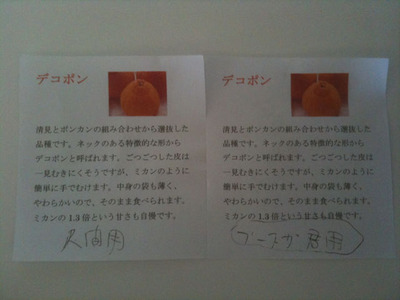 デコポン
清見とポンカンの組み合わせから選抜した
品種です。ネックのある特徴的な形から
デコポンと呼ばれます。ごつごつした皮は
一見むきにくそうですが、ミカンのように
簡単に手でむけます。中身の袋も薄く、
やわらかいので、そのまま食べられます。
ミカンの1.3倍という甘さも自慢です。
人間用
デコポン
清見とポンカンの組み合わせから選抜した
品種です。ネックのある特徴的な形から
デコポンと呼ばれます。ごつごつした皮は
一見むきにくそうですが、ミカンのように
簡単に手でむけます。中身の袋も薄く、
やわらかいので、そのまま食べられます。
ミカンの1.3倍という甘さも自慢です。
君用